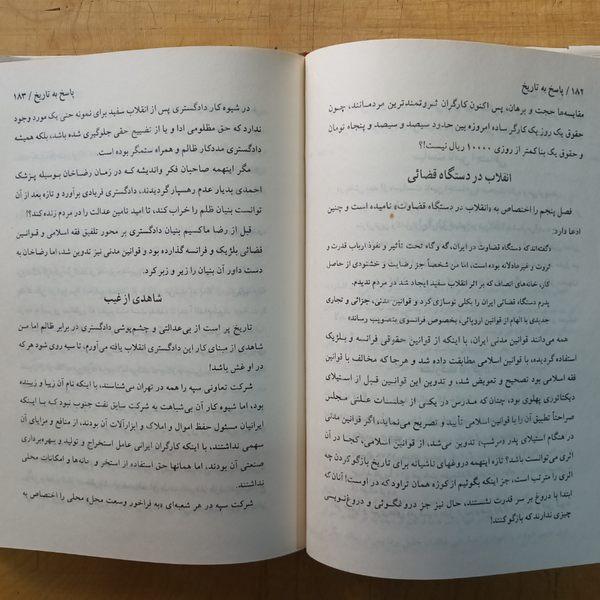 ۱۸۲ / پاسخ به تاریخ
مقایسه‌ها حجت و برهان، پس اکنون کارگران ثروتمندترین مردمانند، چون
حقوق یک روز یک کارگر ساده امروزه بین حدود سیصد و سیصد و پنجاه تومان
و حقوق یک بنا کمتر از روزی ۱۰۰۰۰ ریال نیست!؟
انقلاب در دستگاه قضائی
فصل پنجم را اختصاص به «انقلاب در دستگاه قضاوت» نامیده است و چنین
ادعا دارد:
«گفته‌اند که دستگاه قضاوت در ایران، گه و گاه تحت تأثیر و نفوذ ارباب قدرت و
ثروت و غیرعادلانه بوده است، اما من شخصاً جز رضایت و خشنودی از حاصل
کار، خانه‌های انصاف که بر اثر انقلاب سفید ایجاد شد در مردم ندیدم.
پدرم دستگاه قضائی ایران را بکلی نوسازی کرد و قوانین مدنی، جزائی و تجاری
جدیدی با الهام از قوانین اروپائی، بخصوص فرانسوی بتصویب رساند»
همه می‌دانند قوانین مدنی ایران، با اینکه از قوانین حقوقی فرانسه و بلژیک
استفاده گردیده، با قوانین اسلامی مطابقت داده شد و هرجا که مخالف با قوانین
فقه اسلامی بود تصحیح و تعویض شد، و تدوین این قوانین قبل از استیلای
دیکتاتوری پهلوی بود، چنان که مدرس در یکی از جلسات علنی مجلس
صراحتاً تطبیق آن را با قوانین اسلامی تأیید و تصریح می‌نماید، اگر قوانین مدنی
در هنگام استیلای پدر تدوین می‌شد، از قوانین اسلامی، کجا در آن
اثری می‌توانست باشد؟ تازه اینهمه دروغهای ناشیانه برای تاریخ بازگو کردن چه
اثری را مترتب است، جز اینکه بگوئیم از کوزه همان تراود که در اوست! آنان که
ابتدا با دروغ بر سر قدرت نشستند، حال نیز جز دروغگوئی و دروغ‌نویسی
چیزی ندارند که بازگو کنند!
پاسخ به تاریخ / ۱۸۳
در شیوه کار دادگستری پس از انقلاب سفید برای نمونه حتی یک مورد وجود
ندارد که حق مظلومی ادا و یا از تضییع حقی جلوگیری شده باشد، بلکه همیشه
دادگستری مددکار ظالم و همراه ستمگر بوده است.
مگر اینهمه صاحبان فکر و اندیشه که در زمان رضاخان بوسیله پزشک
احمدی بدیار عدم رهسپار گردیدند، دادگستری فریادی برآورد و تازه بعد از آن
توانست بنیان ظلم را خراب کند، تا امید تامین عدالت را در مردم زنده کند؟!
قبل از رضا ماکسیم بنیان دادگستری بر محور تلفیق فقه اسلامی و قوانین
قضائی بلژیک و فرانسه گذارده بود و قوانین مدنی نیز تدوین شد، اما رضاخان به
دست داور آن بنیان را زیر و زبر کرد.
شاهدی از غیب
تاریخ پر است از بی‌عدالتی و چشم‌پوشی دادگستری در برابر ظالم اما من
شاهدی از مبنای کار این دادگستری انقلاب یافته می‌آورم، تا سیه روی شود هر که
در او غش باشد!
شرکت تعاونی سپه را همه در تهران می‌شناسند، با اینکه نام آن زیبا و زیبنده
بود، اما شیوه کار آن بی‌شباهت به شرکت سابق نفت جنوب نبود که با اینکه
ایرانیان مسئول حفظ اموال و املاک و ابزارآلات آن بودند، از منافع و مزایای آن
سهمی نداشتند، با اینکه کارگران ایرانی عامل استخراج و تولید و بهره‌برداری
صنعتی آن بودند، اما همانها حق استفاده از استخر و خانه‌ها و امکانات محلی
نداشتند.
شرکت سپه در هر شعبه‌ای «به فراخور وسعت محل» محلی را اختصاص به